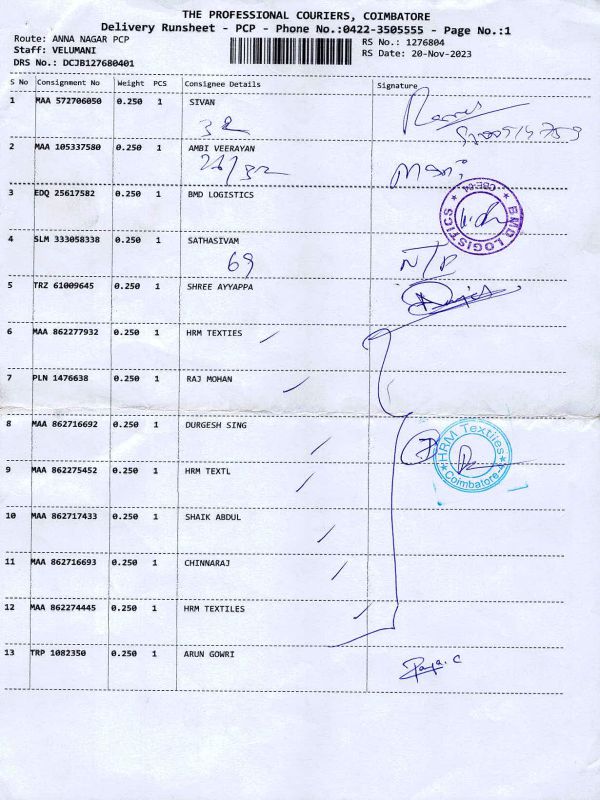 THE PROFESSIONAL COURIERS, COIMBATORE
Delivery Runsheet - PCP - Phone No.:0422-3505555 - Page No.:1
Route: ANNA NAGAR PCP
Staff: VELUMANI
DRS No.: DCJB127680401
RS No.: 1276804
RS Date: 20-Nov-2023
S No Consignment No Weight PCS Consignee Details Signature
1 MAA 572706050 0.250 1 SIVAN
32
2 MAA 105337580 0.250 1 AMBI VEERAYAN
Mani
3 EDQ 25617582 0.250 1 BMD LOGISTICS
BMD LOGISTICS
4 SLM 333058338 0.250 1 SATHASIVAM
69
5 TRZ 61009645 0.250 1 SHREE AYYAPPA
6 MAA 862277932 0.250 1 HRM TEXTIES
7 PLN 1476638 0.250 1 RAJ MOHAN
8 MAA 862716692 0.250 1 DURGESH SING
HRM Textiles
Coimbatore
9 MAA 862275452 0.250 1 HRM TEXTL
10 MAA 862717433 0.250 1 SHAIK ABDUL
11 MAA 862716693 0.250 1 CHINNARAJ
12 MAA 862274445 0.250 1 HRM TEXTILES
13 TRP 1082350 0.250 1 ARUN GOWRI